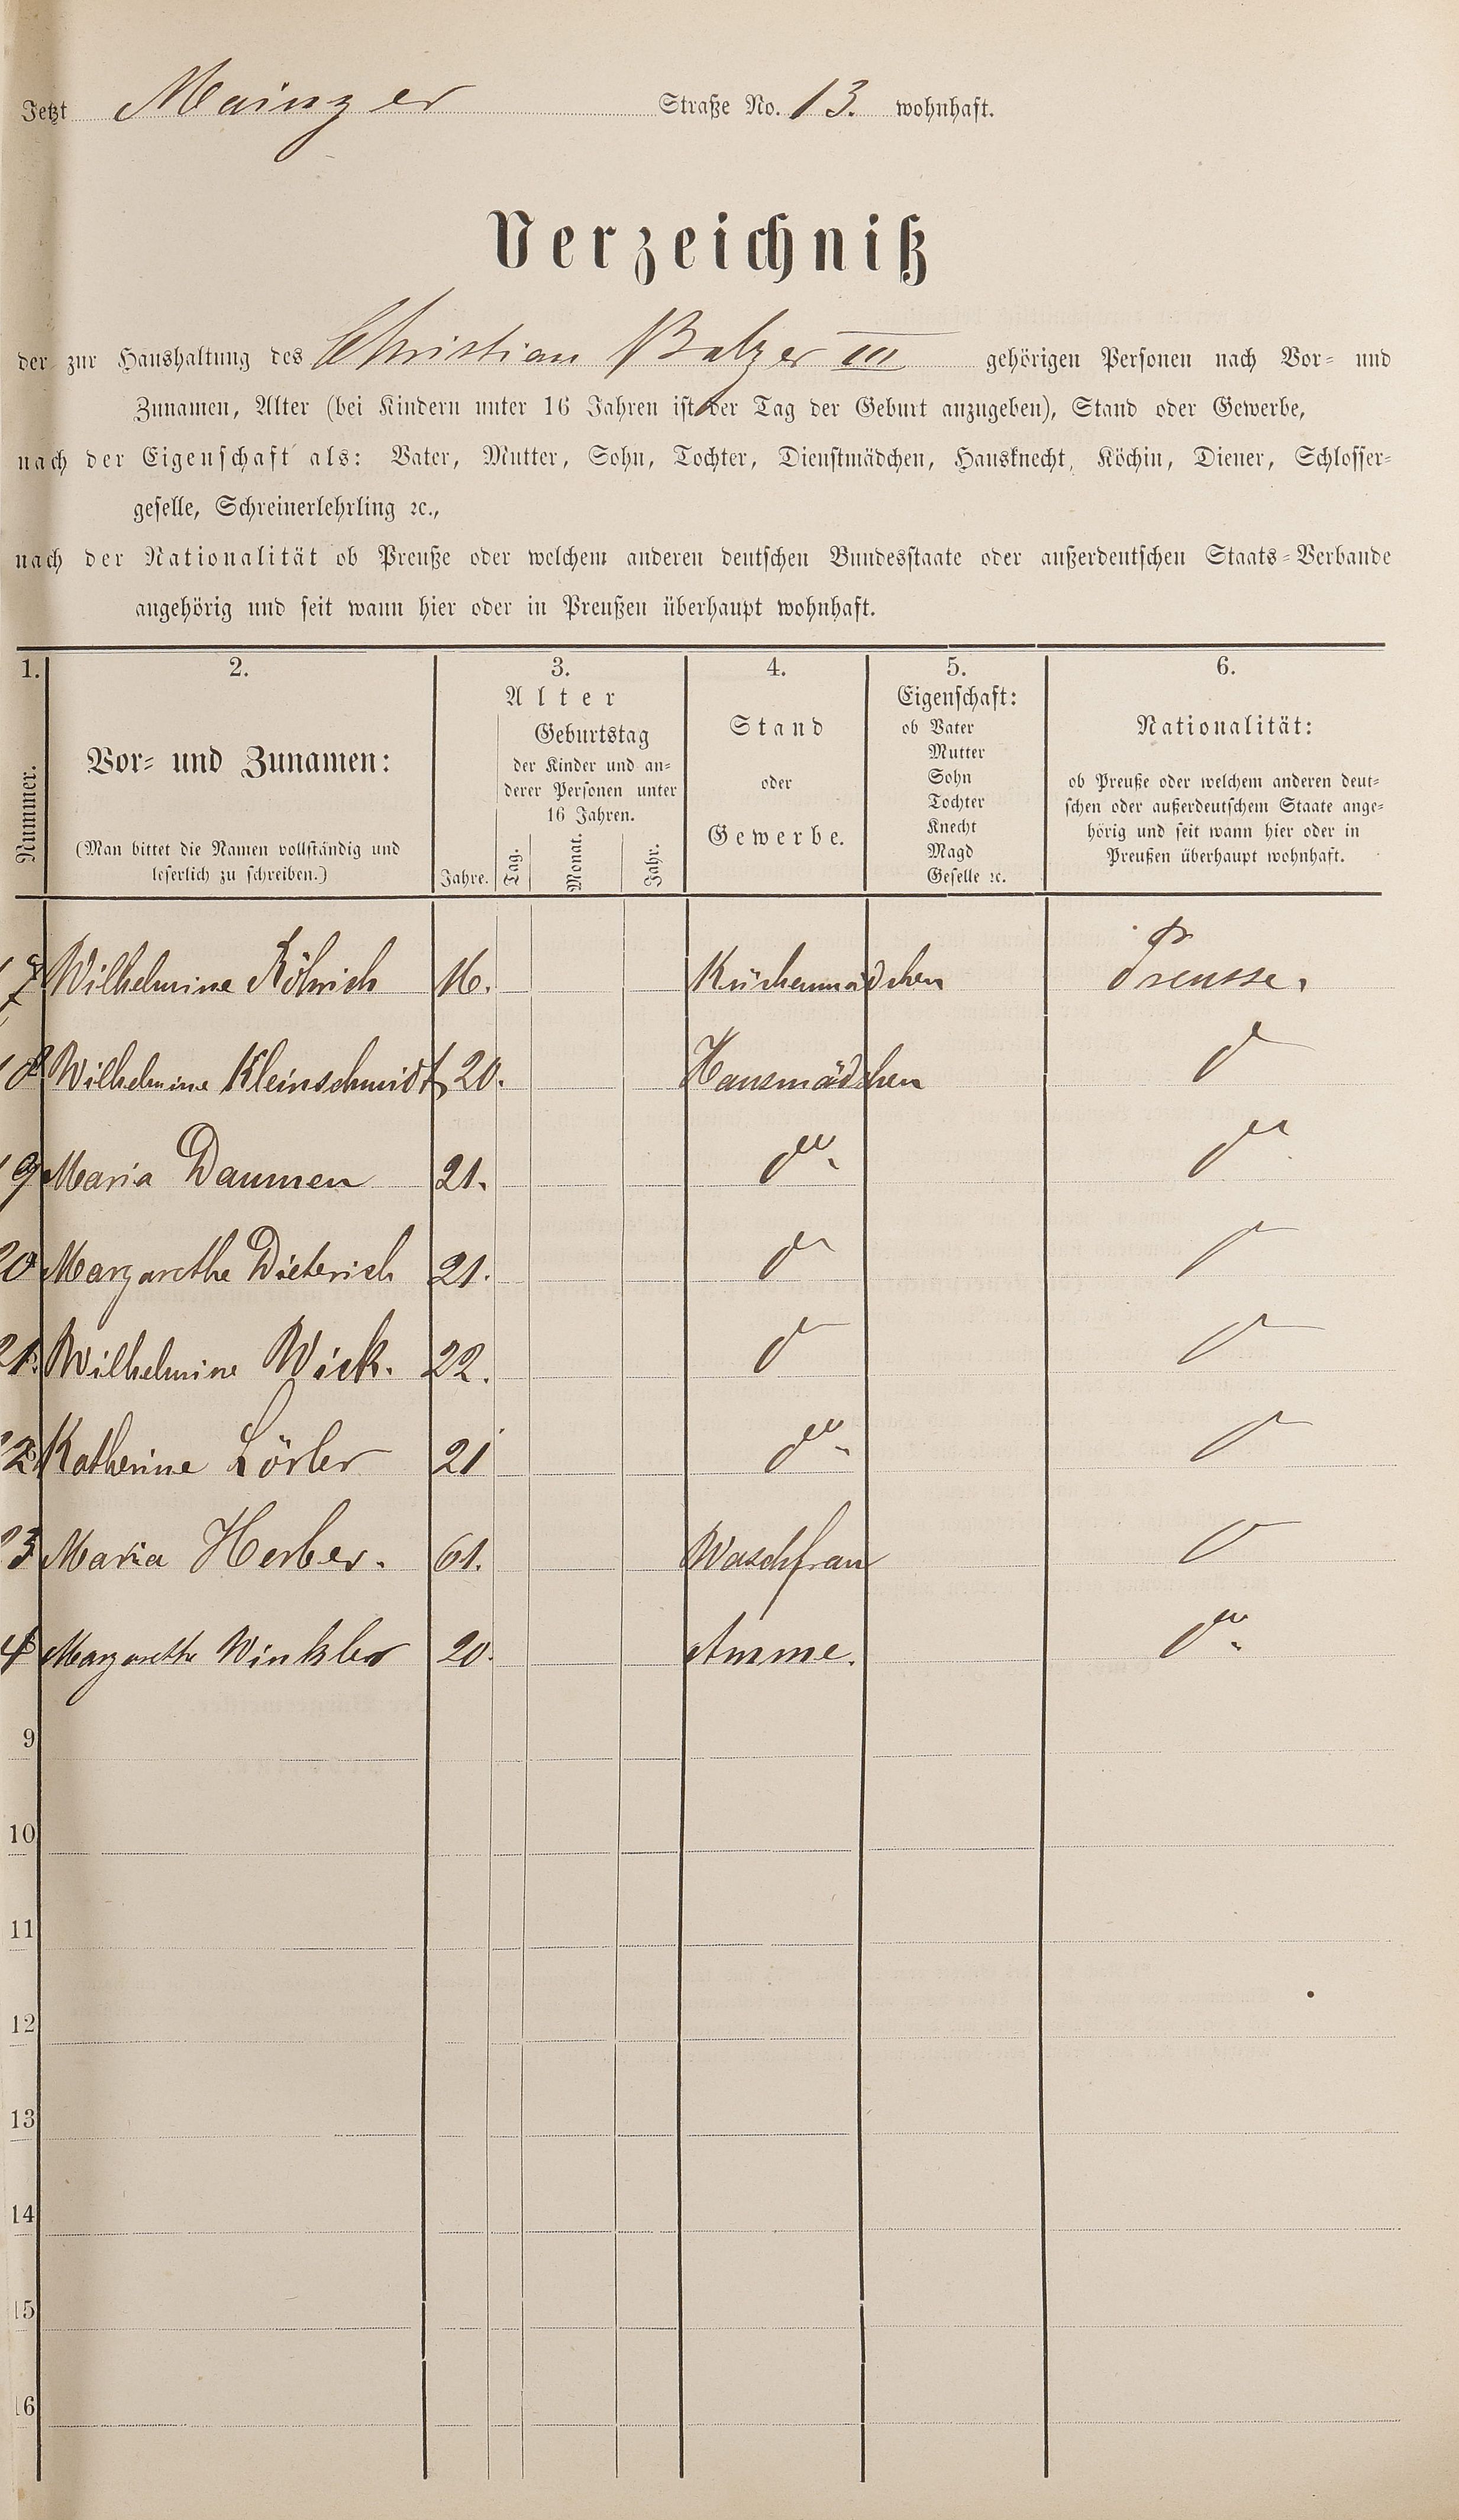 Jetzt Mainzer Straße No. 13. wohnhaft.
Verzeichniß
der zur Haushaltung des Christian Balzer III gehörigen Personen nach Vor- und
Zunamen, Alter (bei Kindern unter 16 Jahren ist der Tag der Geburt anzugeben), Stand oder Gewerbe,
nach der Eigenschaft als: Vater, Mutter, Sohn, Tochter, Dienstmädchen, Hausknecht, Köchin, Diener, Schlosser-
geselle, Schreinerlehrling ꝛc.,
nach der Nationalität ob Preuße oder welchem anderen deutschen Bundesstaate oder außerdeutschen Staats-Verbande
angehörig und seit wann hier oder in Preußen überhaupt wohnhaft.
1. 2. 3. 4. 5. 6.
Nummer.
Vor- und Zunamen:
(Man bittet die Namen vollständig und
leserlich zu schreiben.)
Alter
Jahre.
Geburtstag
der Kinder und an-
derer Personen unter
16 Jahren.
Tag. Monat. Jahr.
Stand
oder
Gewerbe.
Eigenschaft:
ob Vater
Mutter
Sohn
Tochter
Knecht
Magd
Geselle ꝛc.
Nationalität:
ob Preuße oder welchem anderen deut-
schen oder außerdeutschem Staate ange-
hörig und seit wann hier oder in
Preußen überhaupt wohnhaft.
Wilhelmine Röhrich 16. Küchenmädchen Preusse.
Wilhelmine Kleinschmidt 20. Hausmädchen
9 Maria Daumen 21.
20 Margarethe Dieterich 21.
21. Wilhelmine Wick. 22.
2 Katherine Lörler 21
3 Maria Herber. 61. Waschfrau
4 Margarethe Winkler 20. Amme.
9
10
11
12
13
14
15
16